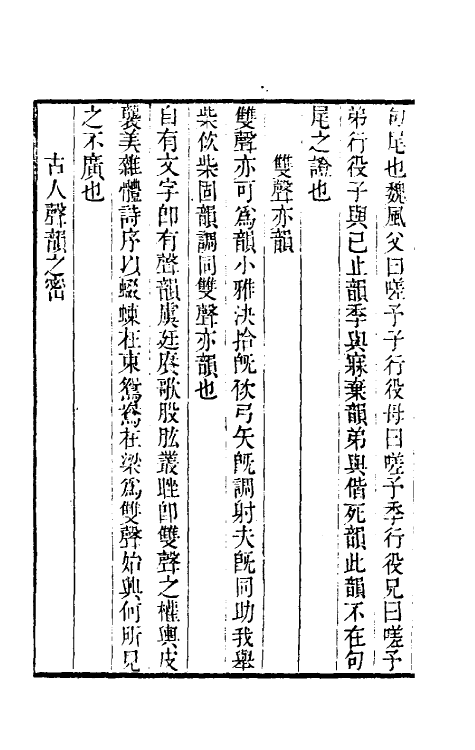 句尾也魏風父曰嗟予子行役母曰嗟予季行役兄曰嗟予
弟行役子與已止韻季與寐棄韻弟與偕死韻此韻不在句
尾之證也
雙聲亦韻
雙聲亦可爲韻小雅決拾旣佽弓矢旣調射夫旣同助我舉
柴佽柴固韻調同雙聲亦韻也
自有文字卽有聲韻虞廷賡歌股肱叢脞卽雙聲之權輿皮
襲美雜體詩序以蝃蝀在東鴛鴦在梁爲雙聲始與何所見
之不廣也
古人聲韻之密